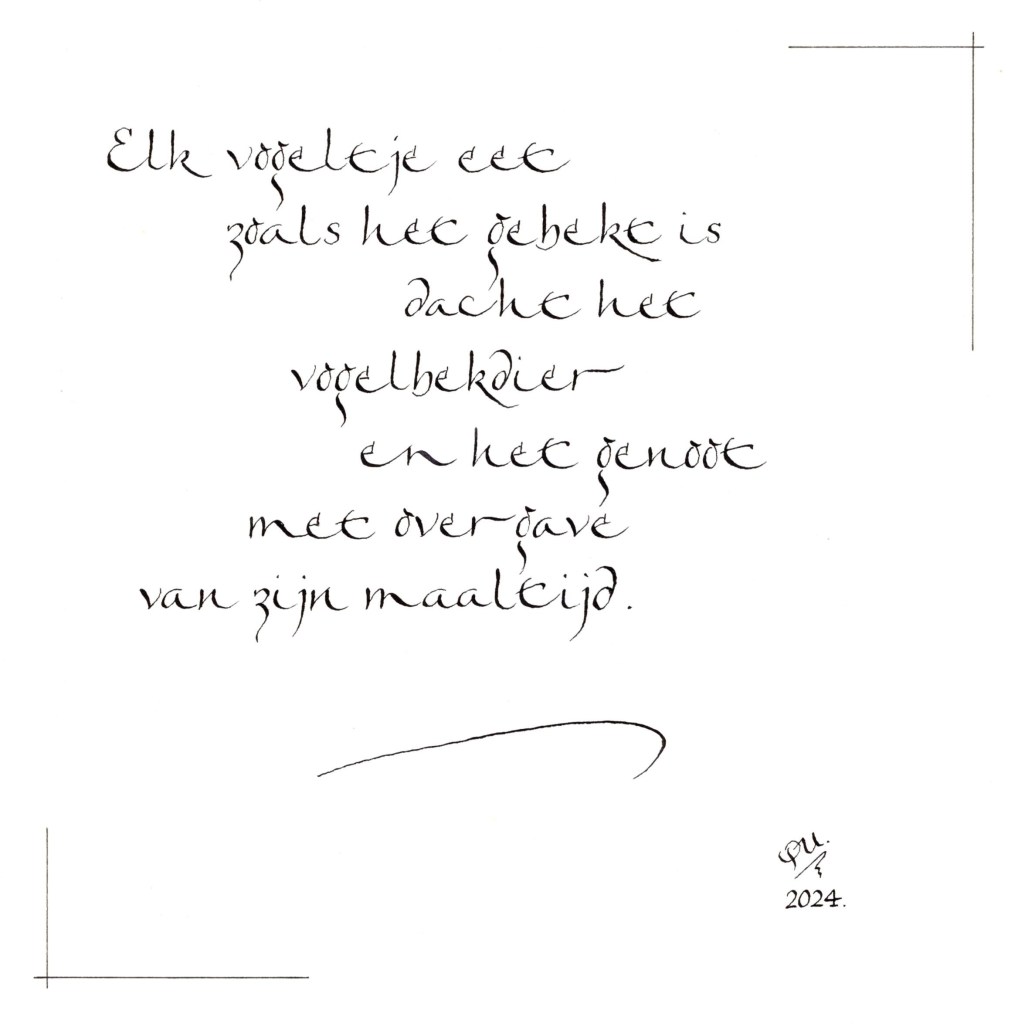 Elk vogeltje eet
zoals het gebekt is
dacht het
vogelbekdier
en het genoot
met overgave
van zijn maaltijd.
2024.